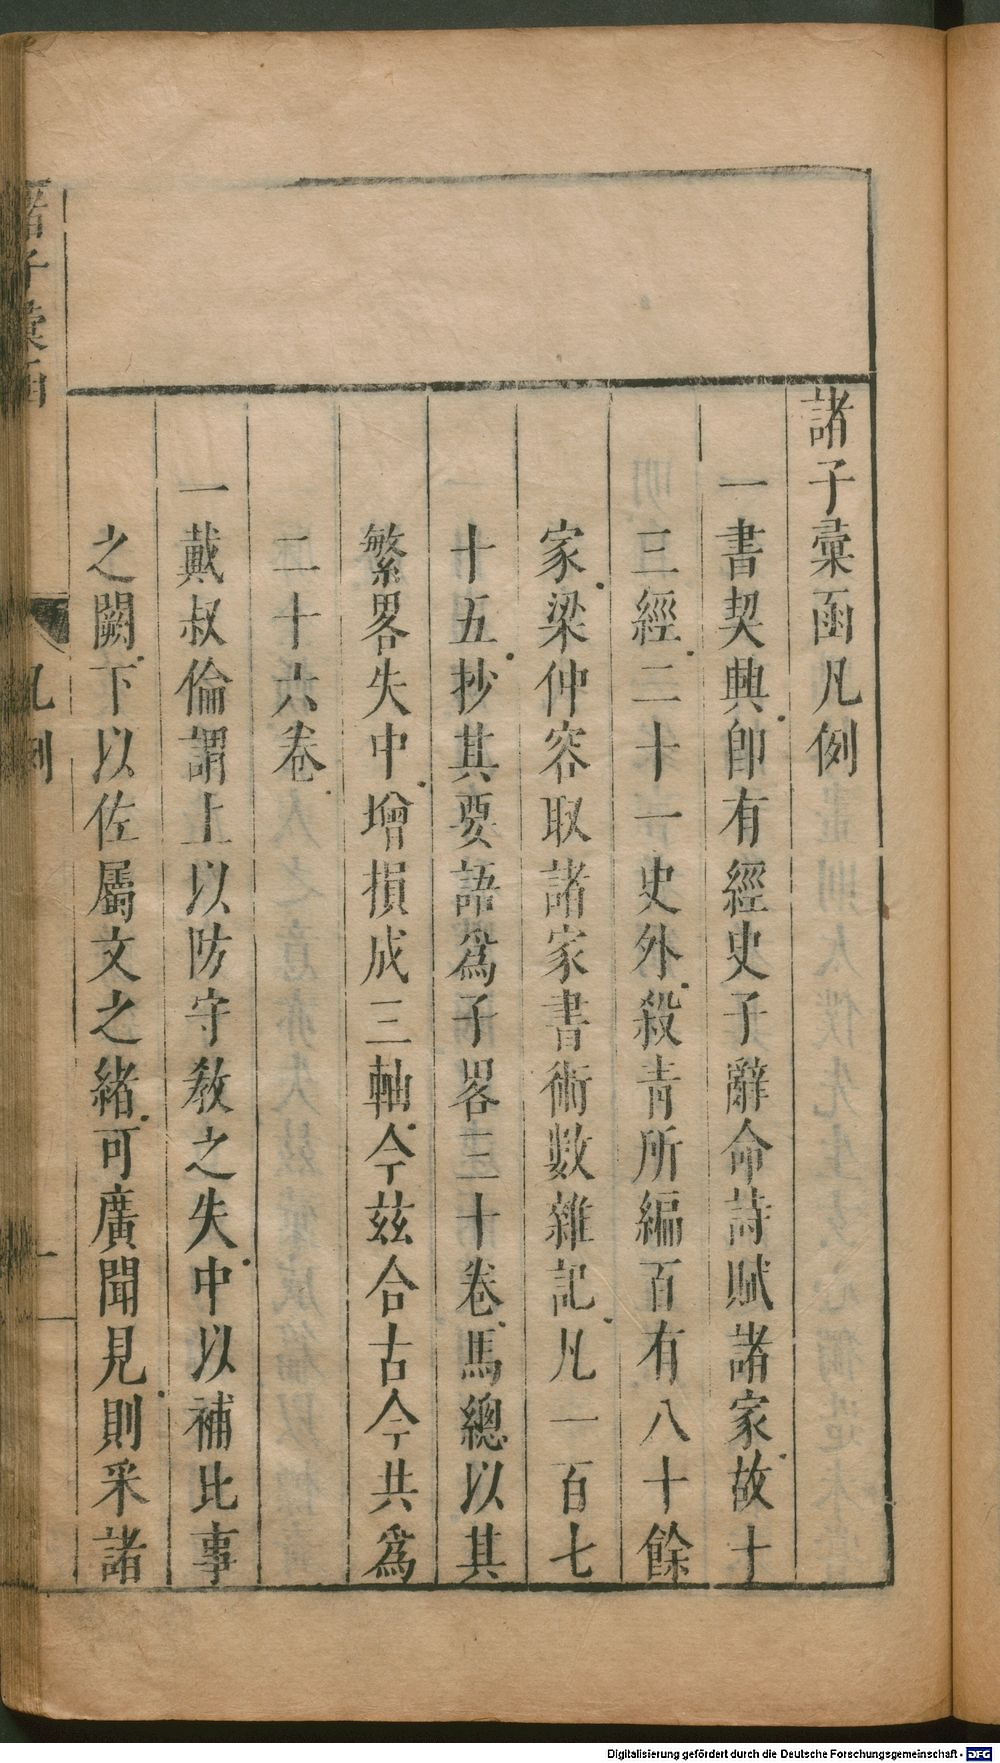 諸子彙函凡例
一書契興卽有經史子辭命詩賦諸家故十
三經二十一史外殺青所編百有八十餘
家梁仲容取諸家書術數雜記凡一百七
十五抄其要語爲子畧三十卷馬總以其
繁畧失中增損成三軸今茲合古今共爲
二十六卷
一戴叔倫謂上以防守教之失中以補比事
之闕下以佐屬文之緒可廣聞見則采諸
諸子彙函
凡例
一
Digitalisierung gefördert durch die Deutsche Forschungsgemeinschaft - DFG